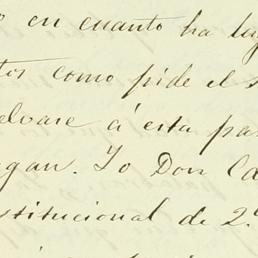 en cuanto ha lu
tos como pide el s
elvase á esta pa
gan. Yo Don Ca
stitucional de 2.